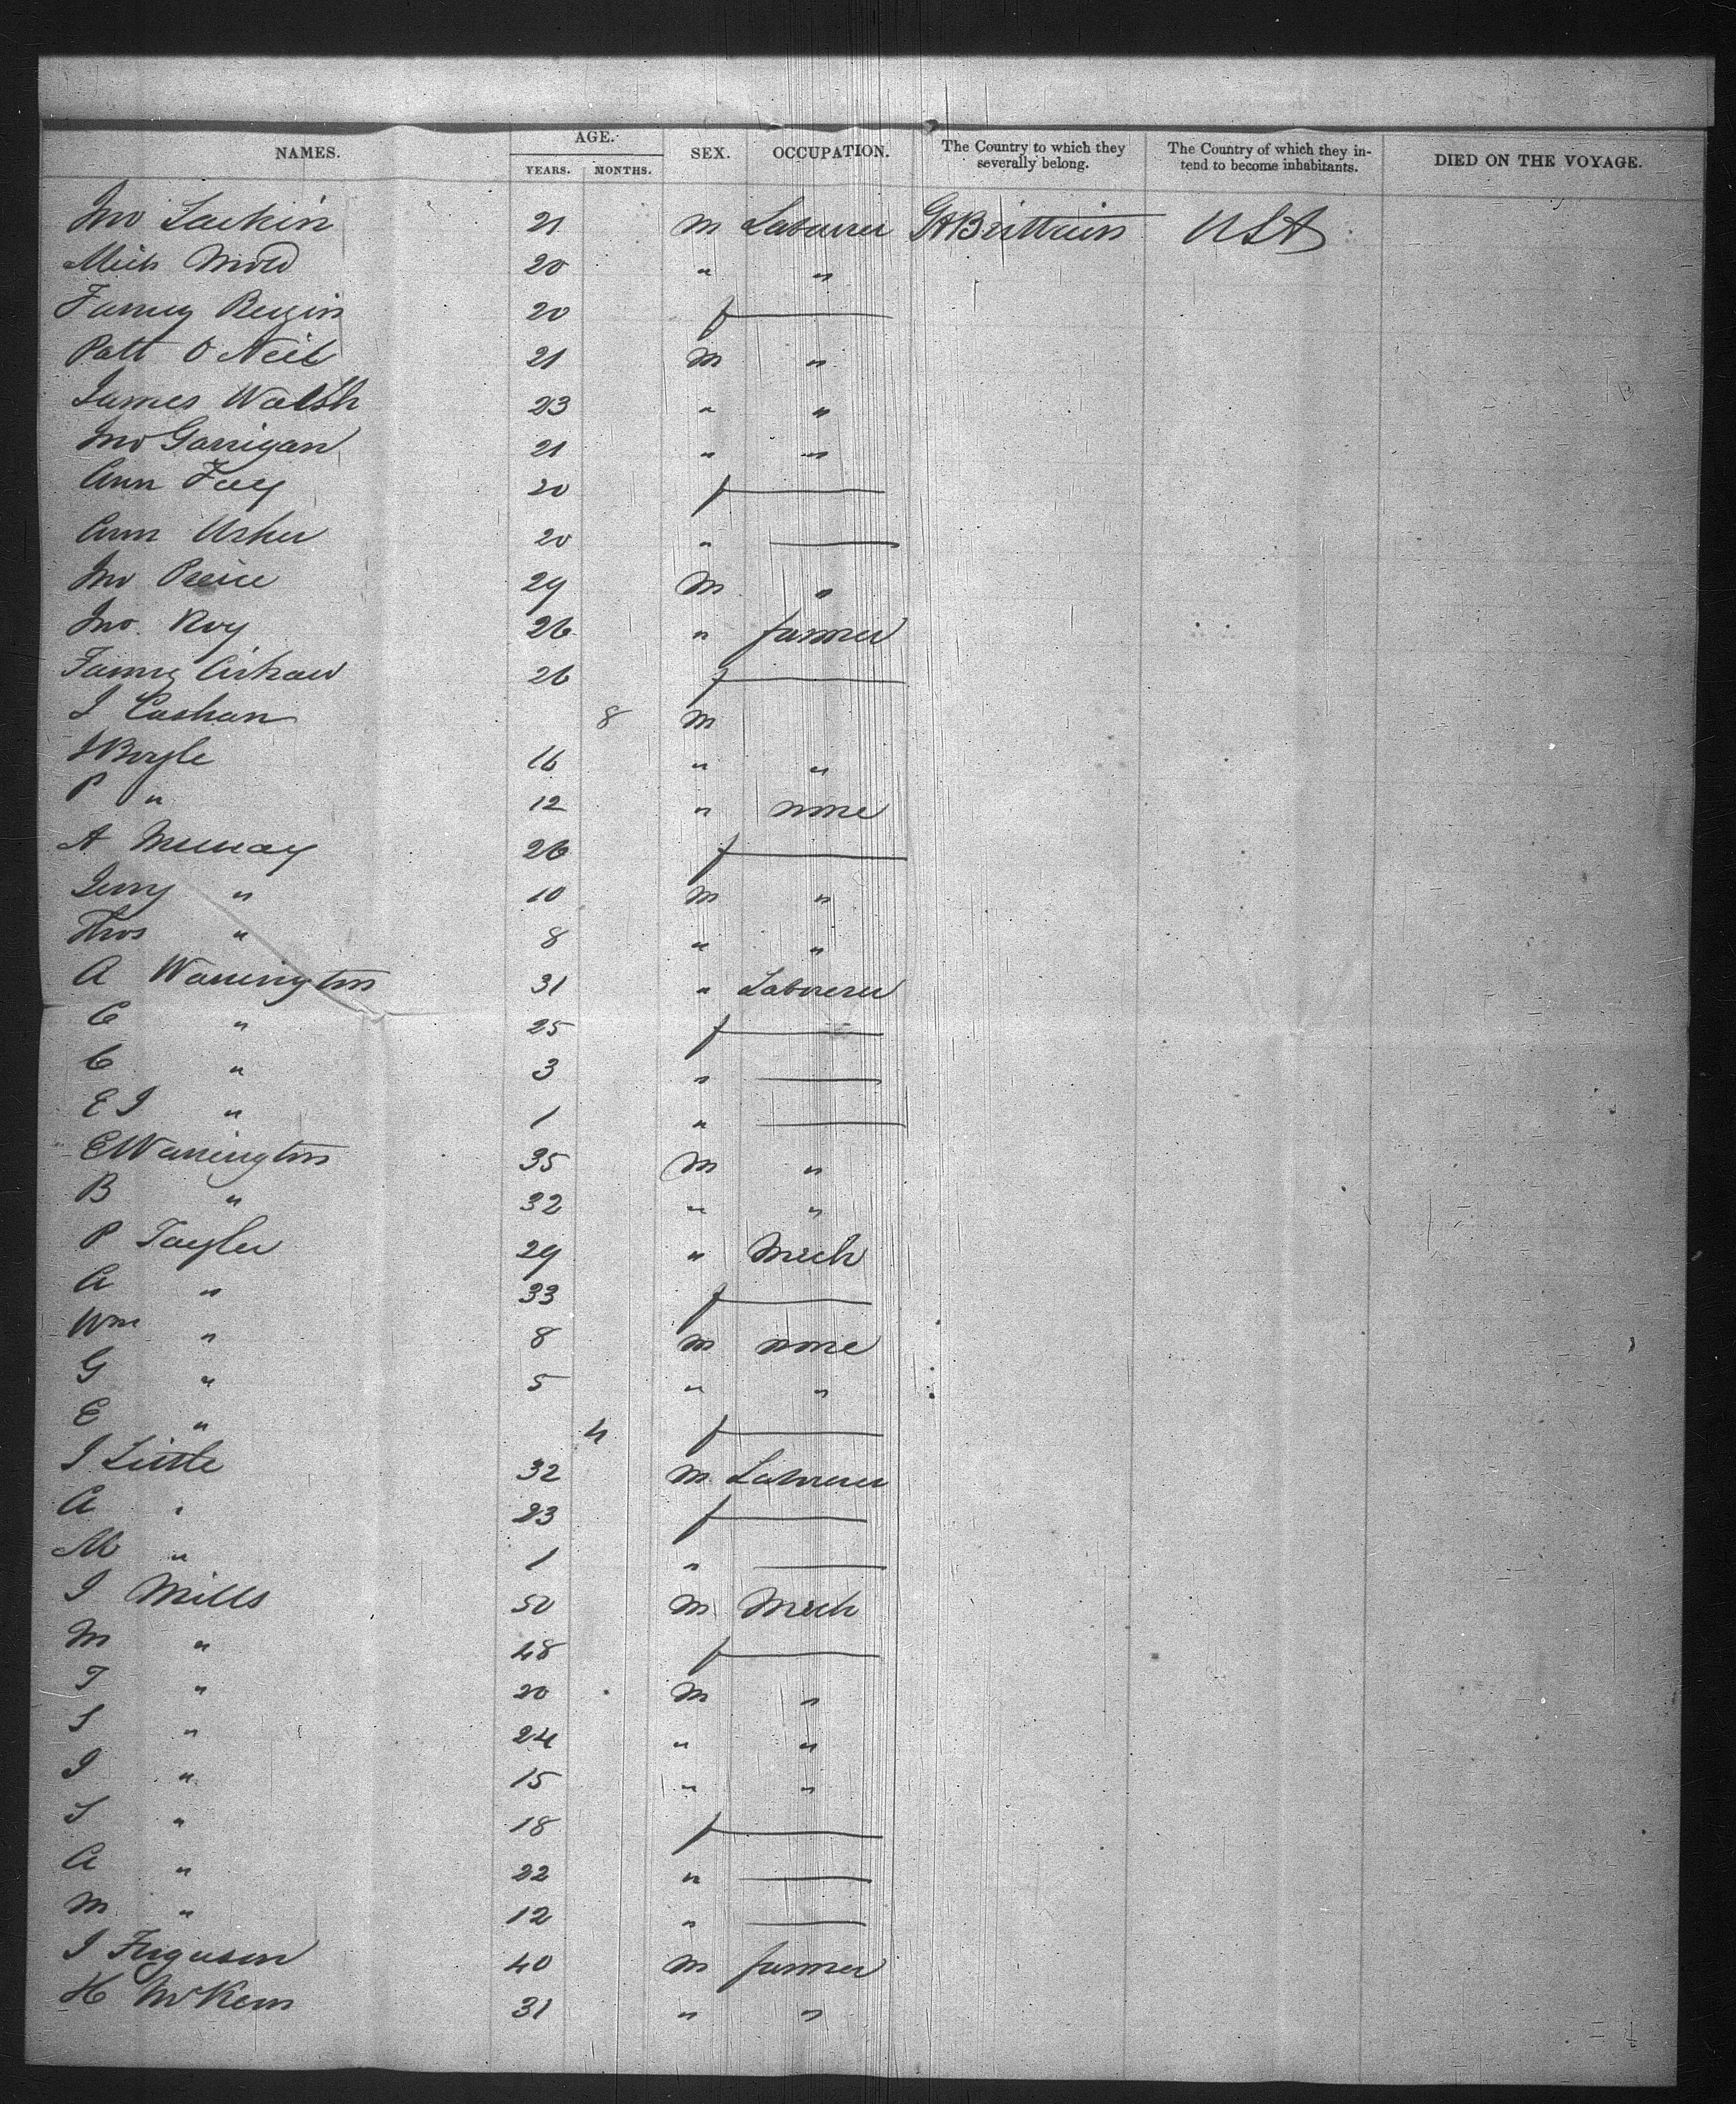 NAMES. AGE. YEARS. MONTHS. SEX. OCCUPATION. The Country to which they severally belong. The Country of which they intend to become inhabitants. DIED ON THE VOYAGE.
Jno Larkin 21 m Labourer Gt Brittain USA
Mich 20 " "
Fanny 20 f
Patt O Neil 21 m "
James Walsh 23 " "
Jno Garrigan 21 " "
Ann Foy 20 f
Ann Usher 20 "
Jno Peirce 29 m "
Jno. Roy 26 " farmer
Fanny 26 f
J Cashan 8 m
J Boyle 16 " "
P " 12 " none
A Murray 26 f
Jerry " 10 m "
Thos " 8 " "
A Warrington 31 " Laborer
C " 25 f
C " 3 "
E J " 1 "
E Warrington 35 m "
B " 32 " "
P Tayler 29 " Mech
A " 33 f
Wm " 8 m none
G " 5 " "
E " 4 f
J Little 32 m Laborer
A " 23 f
M " 1 "
J Mills 50 m Mech
M " 48 f
T " 20 m "
S " 24 " "
J " 15 " "
S " 18 f
A " 22 "
M " 12 "
J Ferguson 40 m farmer
H McKern 31 " "